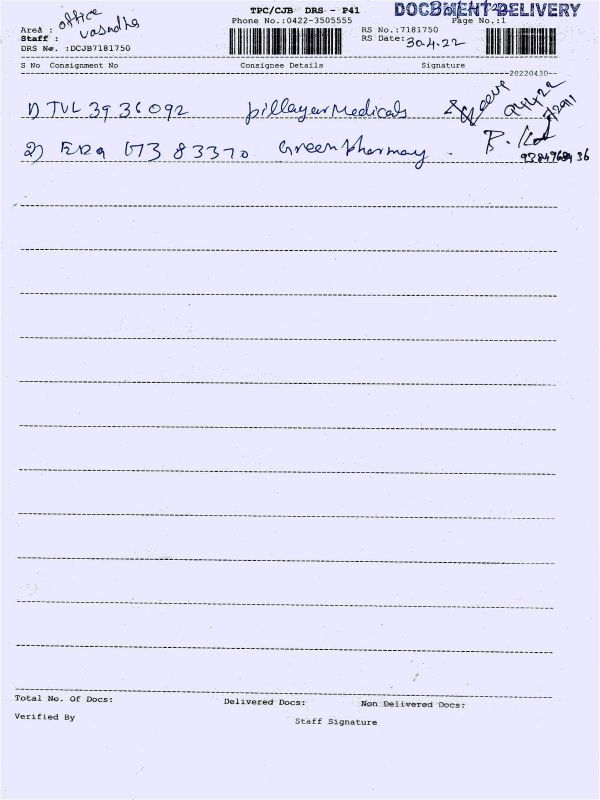 TPC/CJB DRS - P41
DOCUMENT DELIVERY
Phone No.:0422-3505555
Page No.:1
Area : office
Staff : vasudha
DRS No. :DCJB7181750
RS No.:7181750
RS Date: 30.4.22
S No Consignment No Consignee Details Signature
--20220430--
1) TVL 3936092 pillayar Medicals
2) ERQ 17383370 Green pharmay
Total No. Of Docs: Delivered Docs: Non Delivered Docs:
Verified By Staff Signature